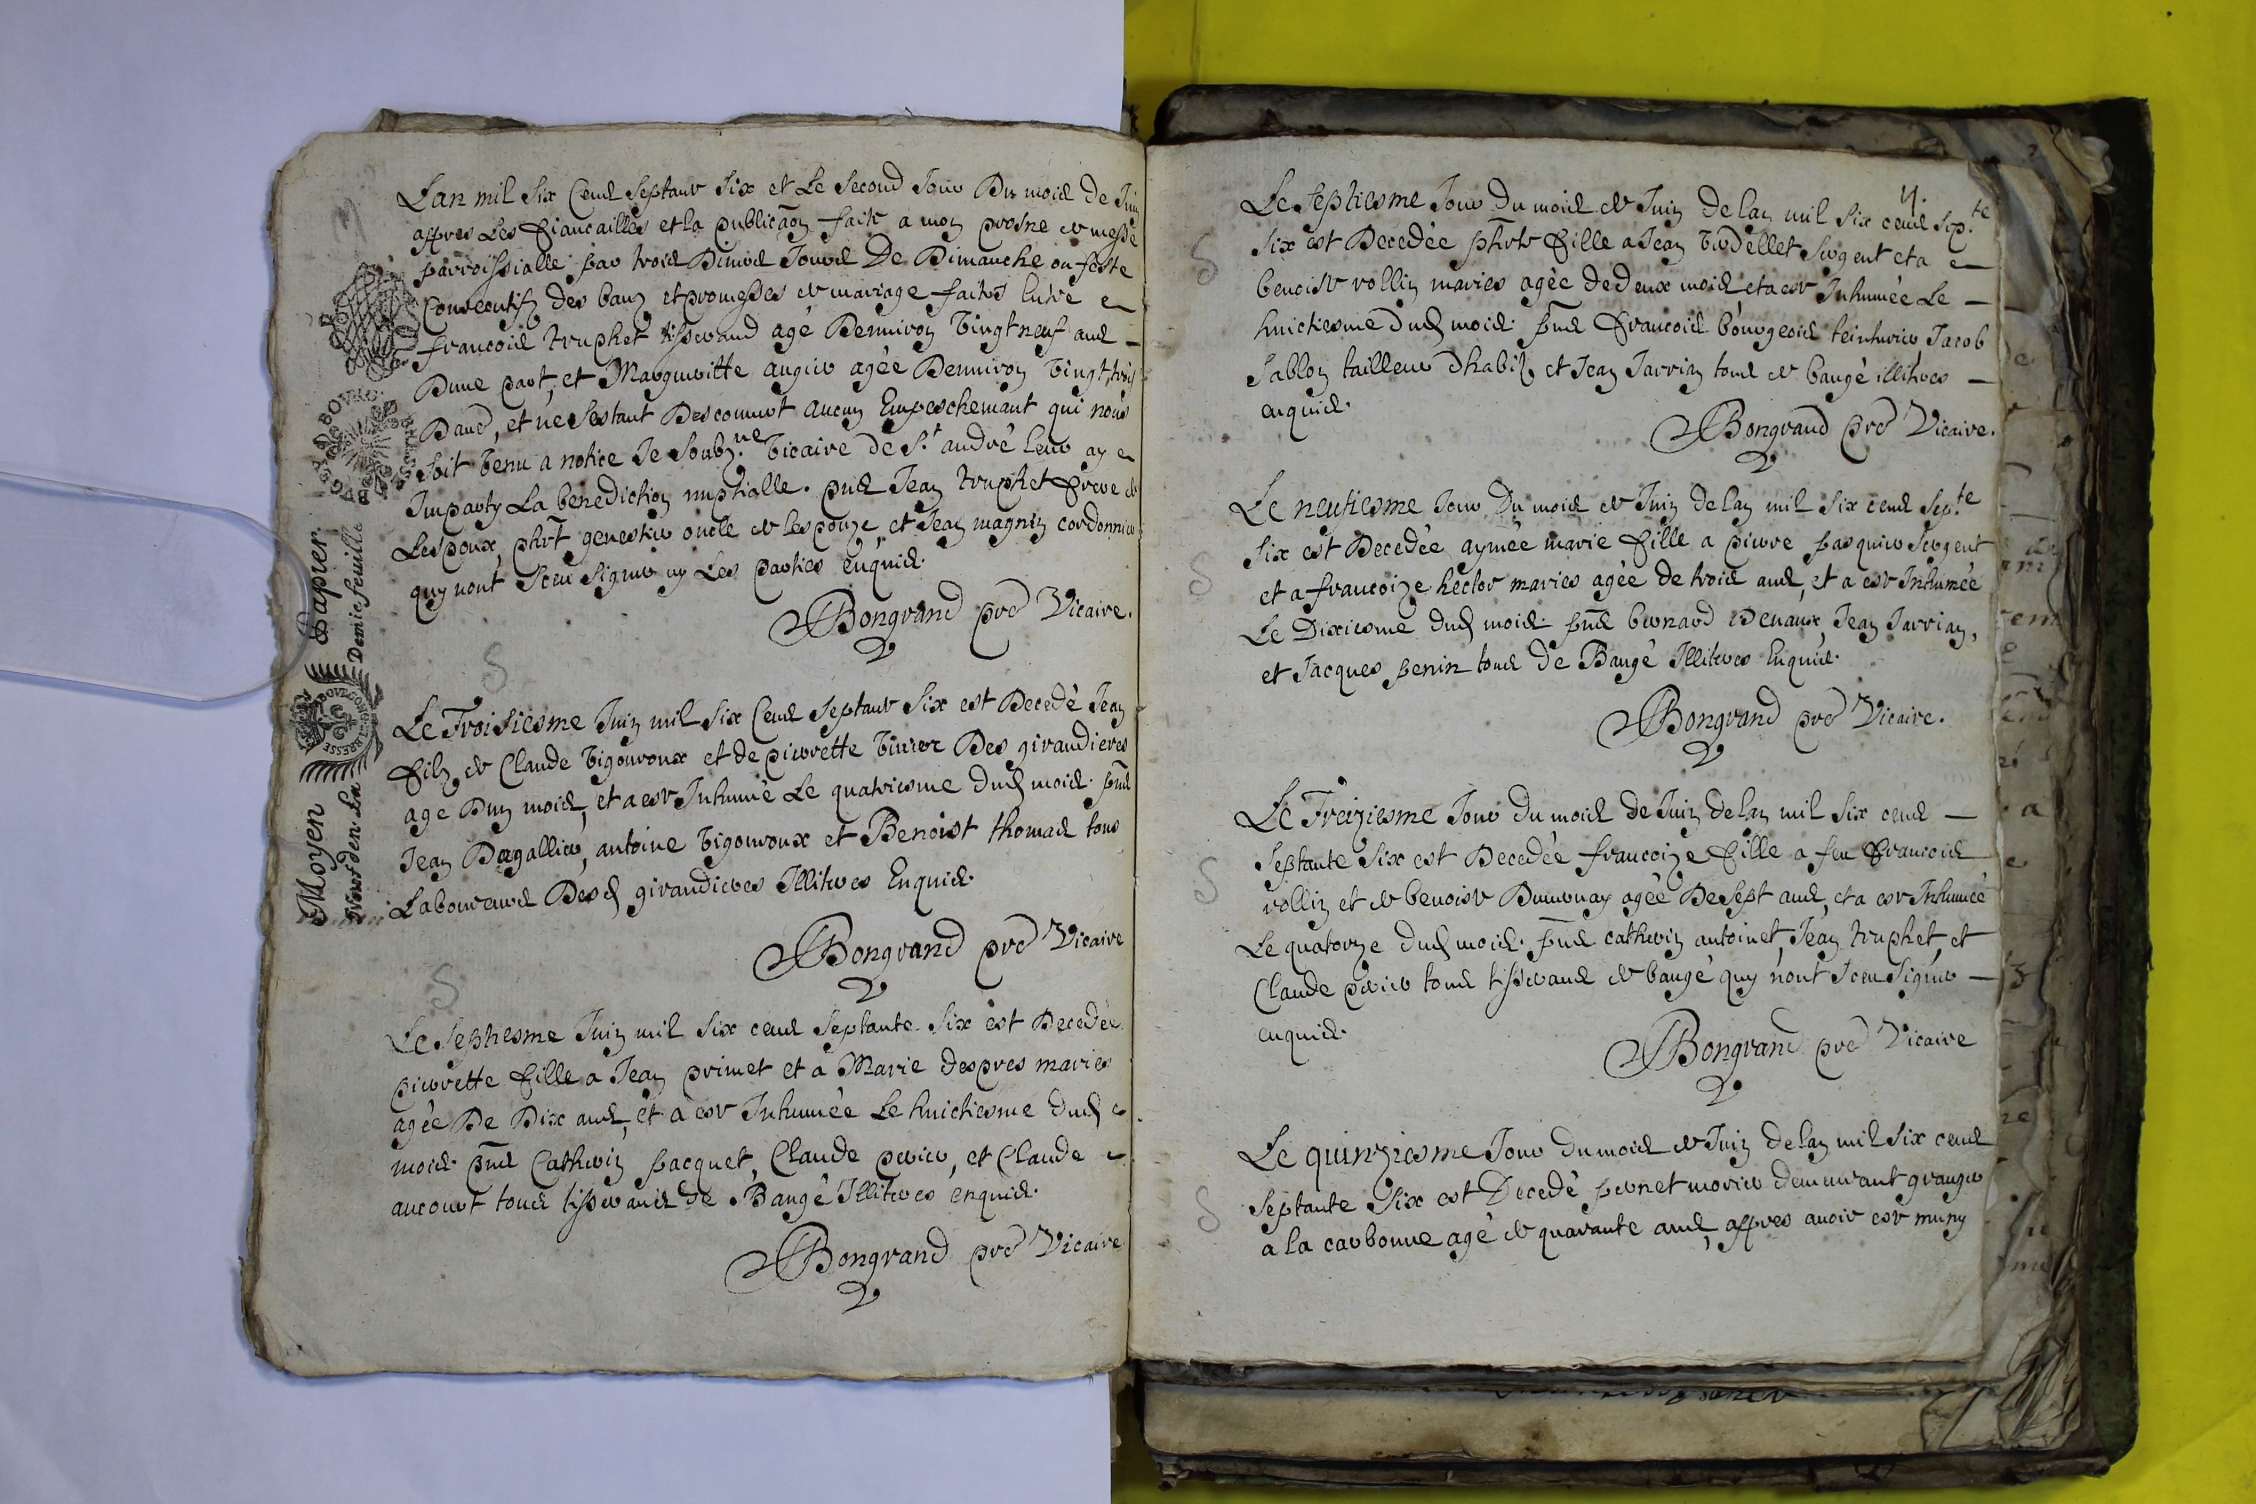 Lan mil six Cens septante six et Le second Jour Du mois de Juin
appres Les fiancailles et la publicaon faite a mon prosne de messe
parroissialle par trois Divers Jours De Dimanche ou feste
Consecutifz des bans et promesses de mariage faites Entre
francois truphet tisserand agé Denviron Vingt neuf ans
Dune part, et Margueritte augier agée Denviron Vingt trois
Dans, et ne sestant Descouvert aucun Empeschemant qui nous
soit venu a notice Je soubz.ne Vicaire de S.t andré leur ay
Imparty La benediction nuptialle. pns Jean truphet frere de
Lespoux, phrt genestier oncle de lespouze, et Jean magnin cordonnier
quy nont sceu signer ny Les parties enquis.
Bongrand pre Vicaire.
Le Troisiesme Juin mil six Cens septante six est Decedé Jean
filz de Claude Vigouroux et de pierrette Des girandieres
age Dun mois, et a este Inhumé Le quatriesme dud mois. pns
Jean Dagallier, antoine Vigouroux et Benoist thomas tous
Laboureurs Desd girandieres Illiteres Enquis.
Bongrand pre Vicaire
Le septiesme Juin mil six cens septante six est Decedée
pierrette fille a Jean primet et a Marie despres maries
agée De Dix ans, et a este Inhumée Le huictiesme dud
mois. pns Catherin pacquet, Claude perier, et Claude
aucourt tous tisserands de Baugé Illiteres enquis.
Bongrand pre Vicaire
Le septiesme Jour du mois de Juin de lan mil six cens sep.te
six est Decedée phrte fille a Jean Verdellet sergent et a
benoiste rollin maries agée de deux mois, et a este Inhumée Le
huictiesme dud mois. pns francois bourgeois teinturier Jacob
sablon tailleur dhabitz et Jean Jarrian tous de baugé illiteres
enquis.
Bongrand pre Vicaire.
Le neufiesme Jour Du mois de Juin de lan mil six cens sep.te
six est Decedée aymée marie fille a pierre pasquier sergent
et a francoize hector maries agée de trois ans, et a este Inhumée
Le Dixiesme dud mois. pns bernard Devaux, Jean Jarrian,
et Jacques penin tous de Baugé Illiteres Enquis.
Bongrand pre Vicaire.
Le Treiziesme Jour du mois de Juin de lan mil six cens
septante six est Decedée francoize fille a feu francois
rollin et de benoiste agée De sept ans, et a este Inhumée
Le quatorze dud mois. pns catherin antoinet, Jean truphet, et
Claude perier tous tisserans de baugé quy nont sceu signer
enquis.
Bongrand pre Vicaire
Le quinziesme Jour du mois de Juin de lan mil six cens
septante six est Decedé pernet morier demeurant granger
a la carbonne agé de quarante ans, appres avoir este muny
Moyen Papier
Demie feuille